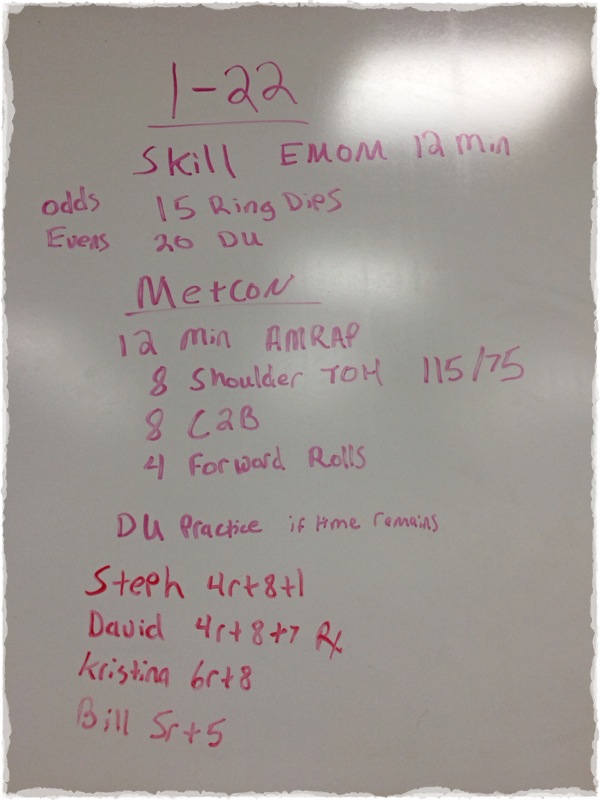 1-22
Skill EMOM 12 min
odds 15 Ring Dips
Evens 20 DU
Metcon
12 min AMRAP
8 Shoulder TOH 115/75
8 C2B
4 Forward Rolls
DU Practice if time remains
Steph 4r+8+1
David 4r+8+7 Rx
Kristina 6r+8
Bill 5r+5